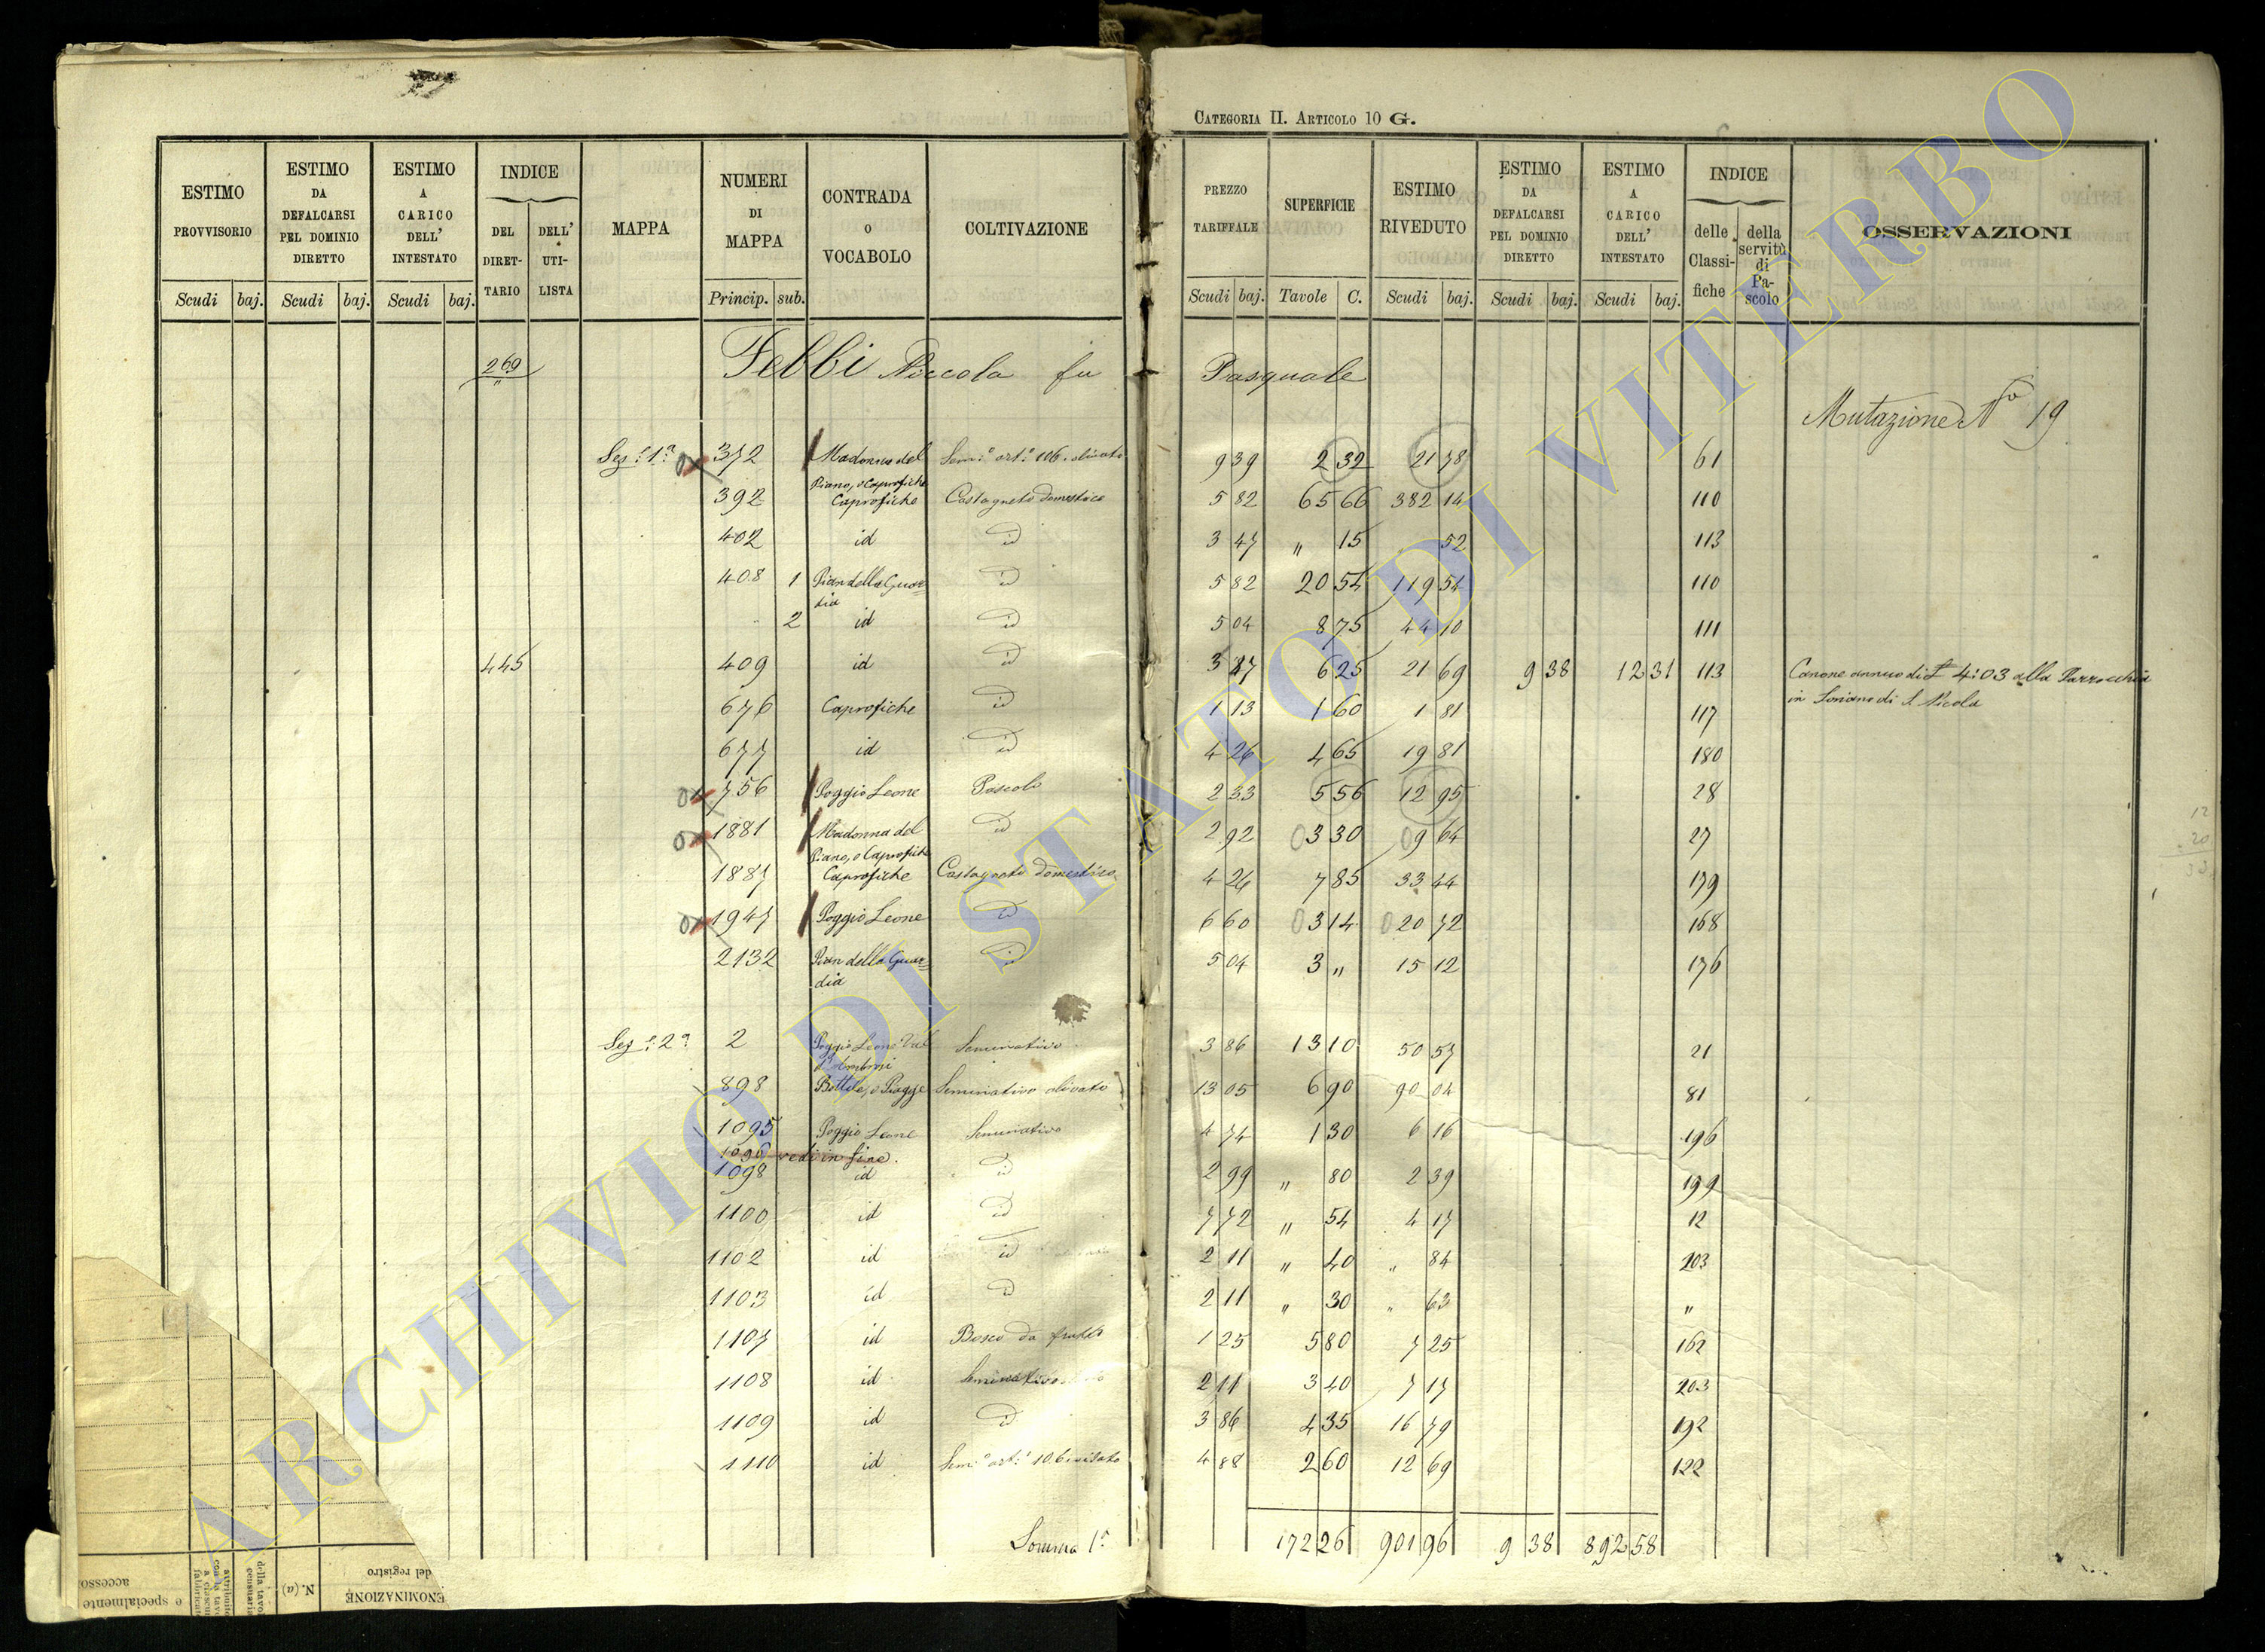 CATEGORIA II. ARTICOLO 10 G.
ESTIMO PROVVISORIO
ESTIMO DA DEFALCARSI PEL DOMINIO DIRETTO
ESTIMO A CARICO DELL' INTESTATO
INDICE
DEL DIRETTARIO
DELL' UTILISTA
MAPPA
NUMERI DI MAPPA
CONTRADA o VOCABOLO
COLTIVAZIONE
PREZZO TARIFFALE
SUPERFICIE
ESTIMO RIVEDUTO
ESTIMO DA DEFALCARSI PEL DOMINIO DIRETTO
ESTIMO A CARICO DELL' INTESTATO
INDICE
delle Classifiche
della servitù di Pascolo
OSSERVAZIONI
Scudi baj. Scudi baj. Scudi baj. Princip. sub.
Scudi baj. Tavole C. Scudi baj. Scudi baj. Scudi baj.
269 Febbi Niccola fu Pasquale
Mutazione No 19
Sez.e 1a 372 Madonna del Piano, o Caprofiche Sem.o art.o 106. olivato 9 39 2 32 21 78 61
392 Caprofiche Castagneto domestico 5 82 65 66 382 14 110
402 id id 3 47 " 15 " 52 113
408 1 Pian della Guardia id 5 82 20 54 119 54 110
2 id id 5 04 8 75 44 10 111
445 409 id id 3 47 6 25 21 69 9 38 12 31 113 Canone annuo di £ 4:03 alla Parrocchia
in Soriano di S Nicola
676 Caprofiche id 1 13 1 60 1 81 117
677 id id 4 26 4 65 19 81 180
756 Poggio Leone Pascolo 2 33 5 56 12 95 28
1881 Madonna del Piano, o Caprofiche id 2 92 3 30 9 64 27
1887 Caprofiche Castagneto domestico 4 26 7 85 33 44 179
1947 Poggio Leone id 6 60 3 14 20 72 168
2132 Pian della Guardia id 5 04 3 " 15 12 176
Sez.e 2a 2 Poggio Leone Val d'Ambrosi Seminativo 3 86 13 10 50 57 21
898 Botte, o Piagge Seminativo olivato 13 05 6 90 90 04 81
1095 Poggio Leone Seminativo 4 74 1 30 6 16 196
1096 vedi in fine.
1098 id id 2 99 " 80 2 39 199
1100 id id 7 72 " 54 4 17 12
1102 id id 2 11 " 40 " 84 203
1103 id id 2 11 " 30 " 63 "
1107 id Bosco da frutto 1 25 5 80 7 25 162
1108 id Seminativo 2 11 3 40 7 17 203
1109 id id 3 86 4 35 16 79 192
1110 id id Sem.o art.o 106. vitato 4 88 2 60 12 69 122
Somma 1a 172 26 901 96 9 38 892 58
12
20
33
ARCHIVIO DI STATO DI VITERBO
ENOMINAZIONE
del registro
N. (a)
della tavola
censuaria
e specialmente
accesso